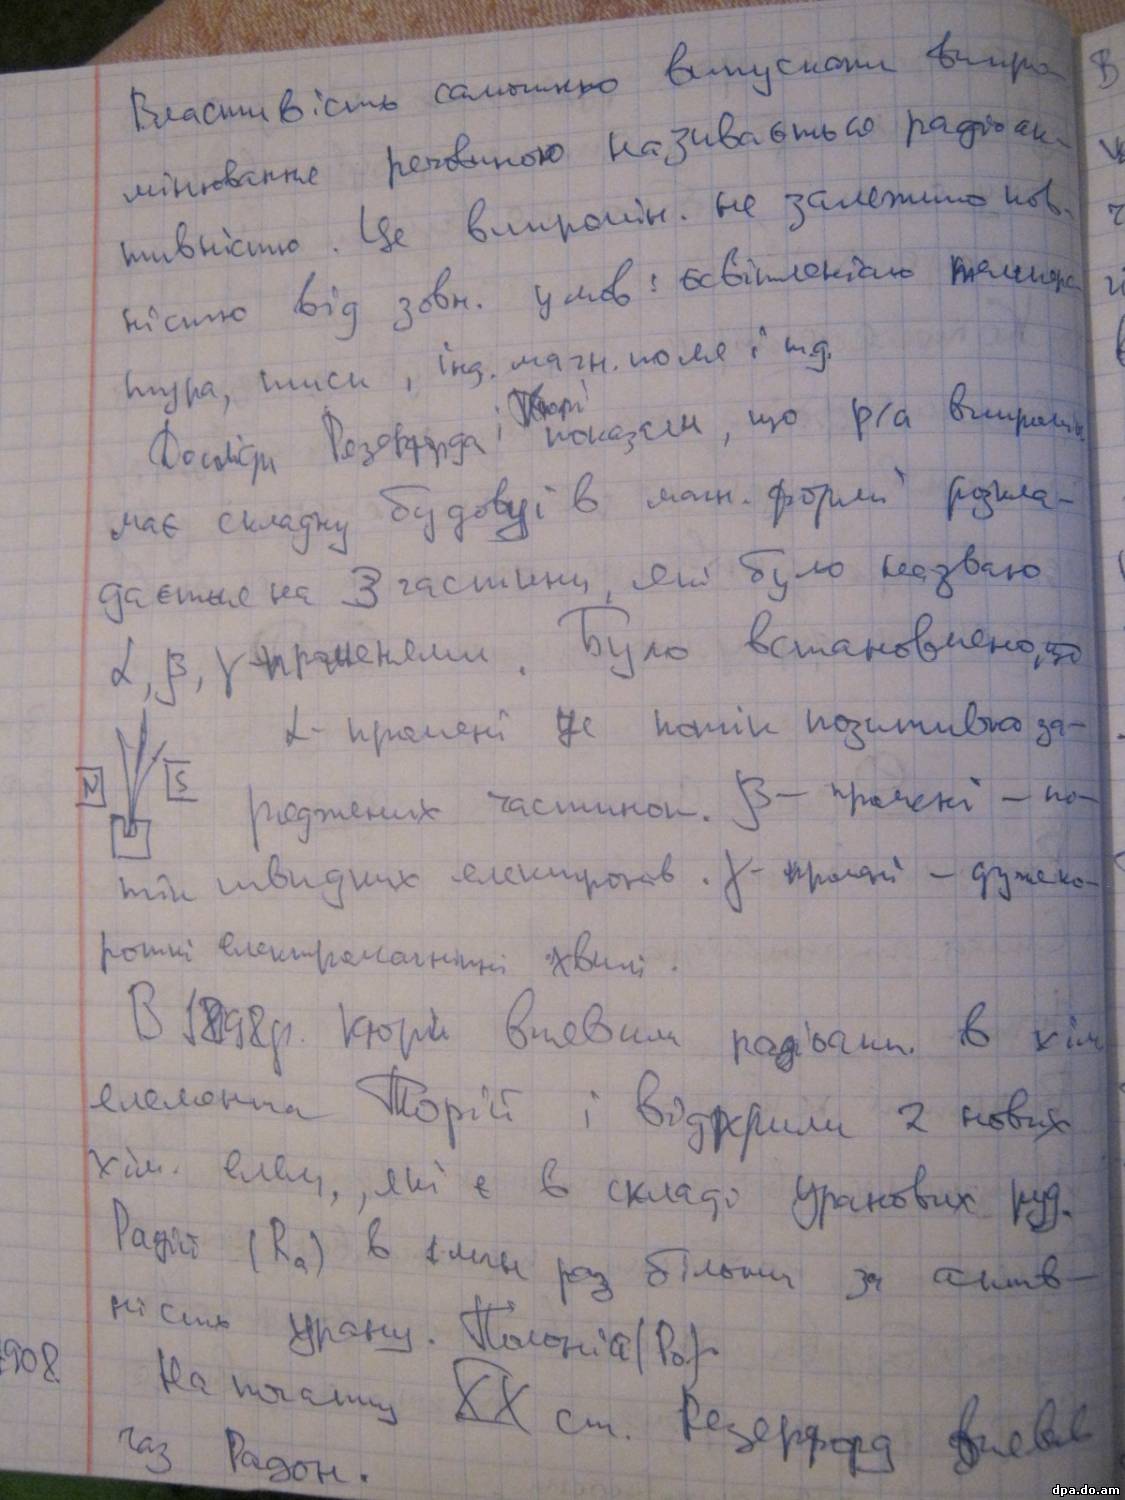 Властивість самочинно випускати випро-
мінювання речовиною називається радіоак-
тивністю. Це випромін. не залежить пов-
ністю від зовн. умов: освітленістю температура
тура, тиск, інд. магн. поля і т.д.
Досліди Резерфорда і Кюрі показали, що р/а випромін
має складну будову і в магн. формі розкла-
дається на 3 частини, які було названо
α, β, γ променями. Було встановлено, що
α- промені це потік позитивно за-
N S
ряджених частинок. β- промені - по-
тік швидких електронів. γ- промені - дуже ко-
роткі електромагнітні хвилі.
В 1898р. Кюрі виявили радіоакт. в хім
елемента Торій і відкрили 2 нових
хім. елем., які є в складі уранових руд.
Радій (Ra) в 1 млн раз більша за актив-
ність урану. Полоній (Po).
1908
На початку XX ст. Резерфорд виявив
газ Радон.
dpa.do.am